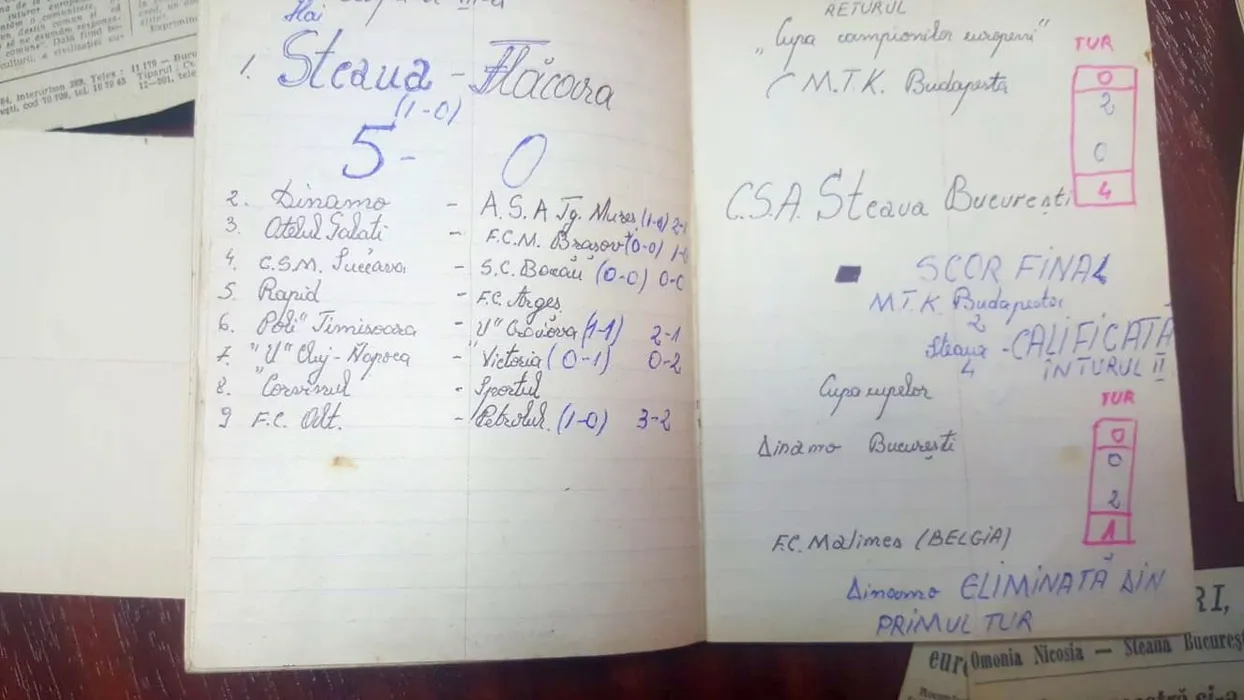 Hai
1. Steaua - Flăcăra
(1-0)
5 - 0
2. Dinamo - A.S.A Tg. Mureș (1-0) 2-1
3. Oțelul Galati - F.C.M. Brașov (0-0)
4. C.S.M. Suceava - S.C. Bacău (0-0) 0-0
5. Rapid - F.C. Argeș
6. "Poli" Timisoara - "U" Craiova (1-1) 2-1
7. "U" Cluj-Napoca - Victoria (0-1) 0-2
8. "Corvinul - Sportul
9 F.C. Olt. - Petrolul. (1-0) 3-2
RETURUL
„Cupa campionilor europeni"
TUR
M.T.K. Budapesta
0
2
0
C.S.A. Steaua București
4
SCOR FINAL
M.T.K. Budapesta
2
Steaua - CALIFICATĂ
4
ÎN TURUL II
Cupa cupelor
TUR
Dinamo București
0
0
2
F.C. Malines (BELGIA)
1
Dinamo ELIMINATĂ DIN
PRIMUL TUR
Omonia Nicosia — Steaua Bucureș